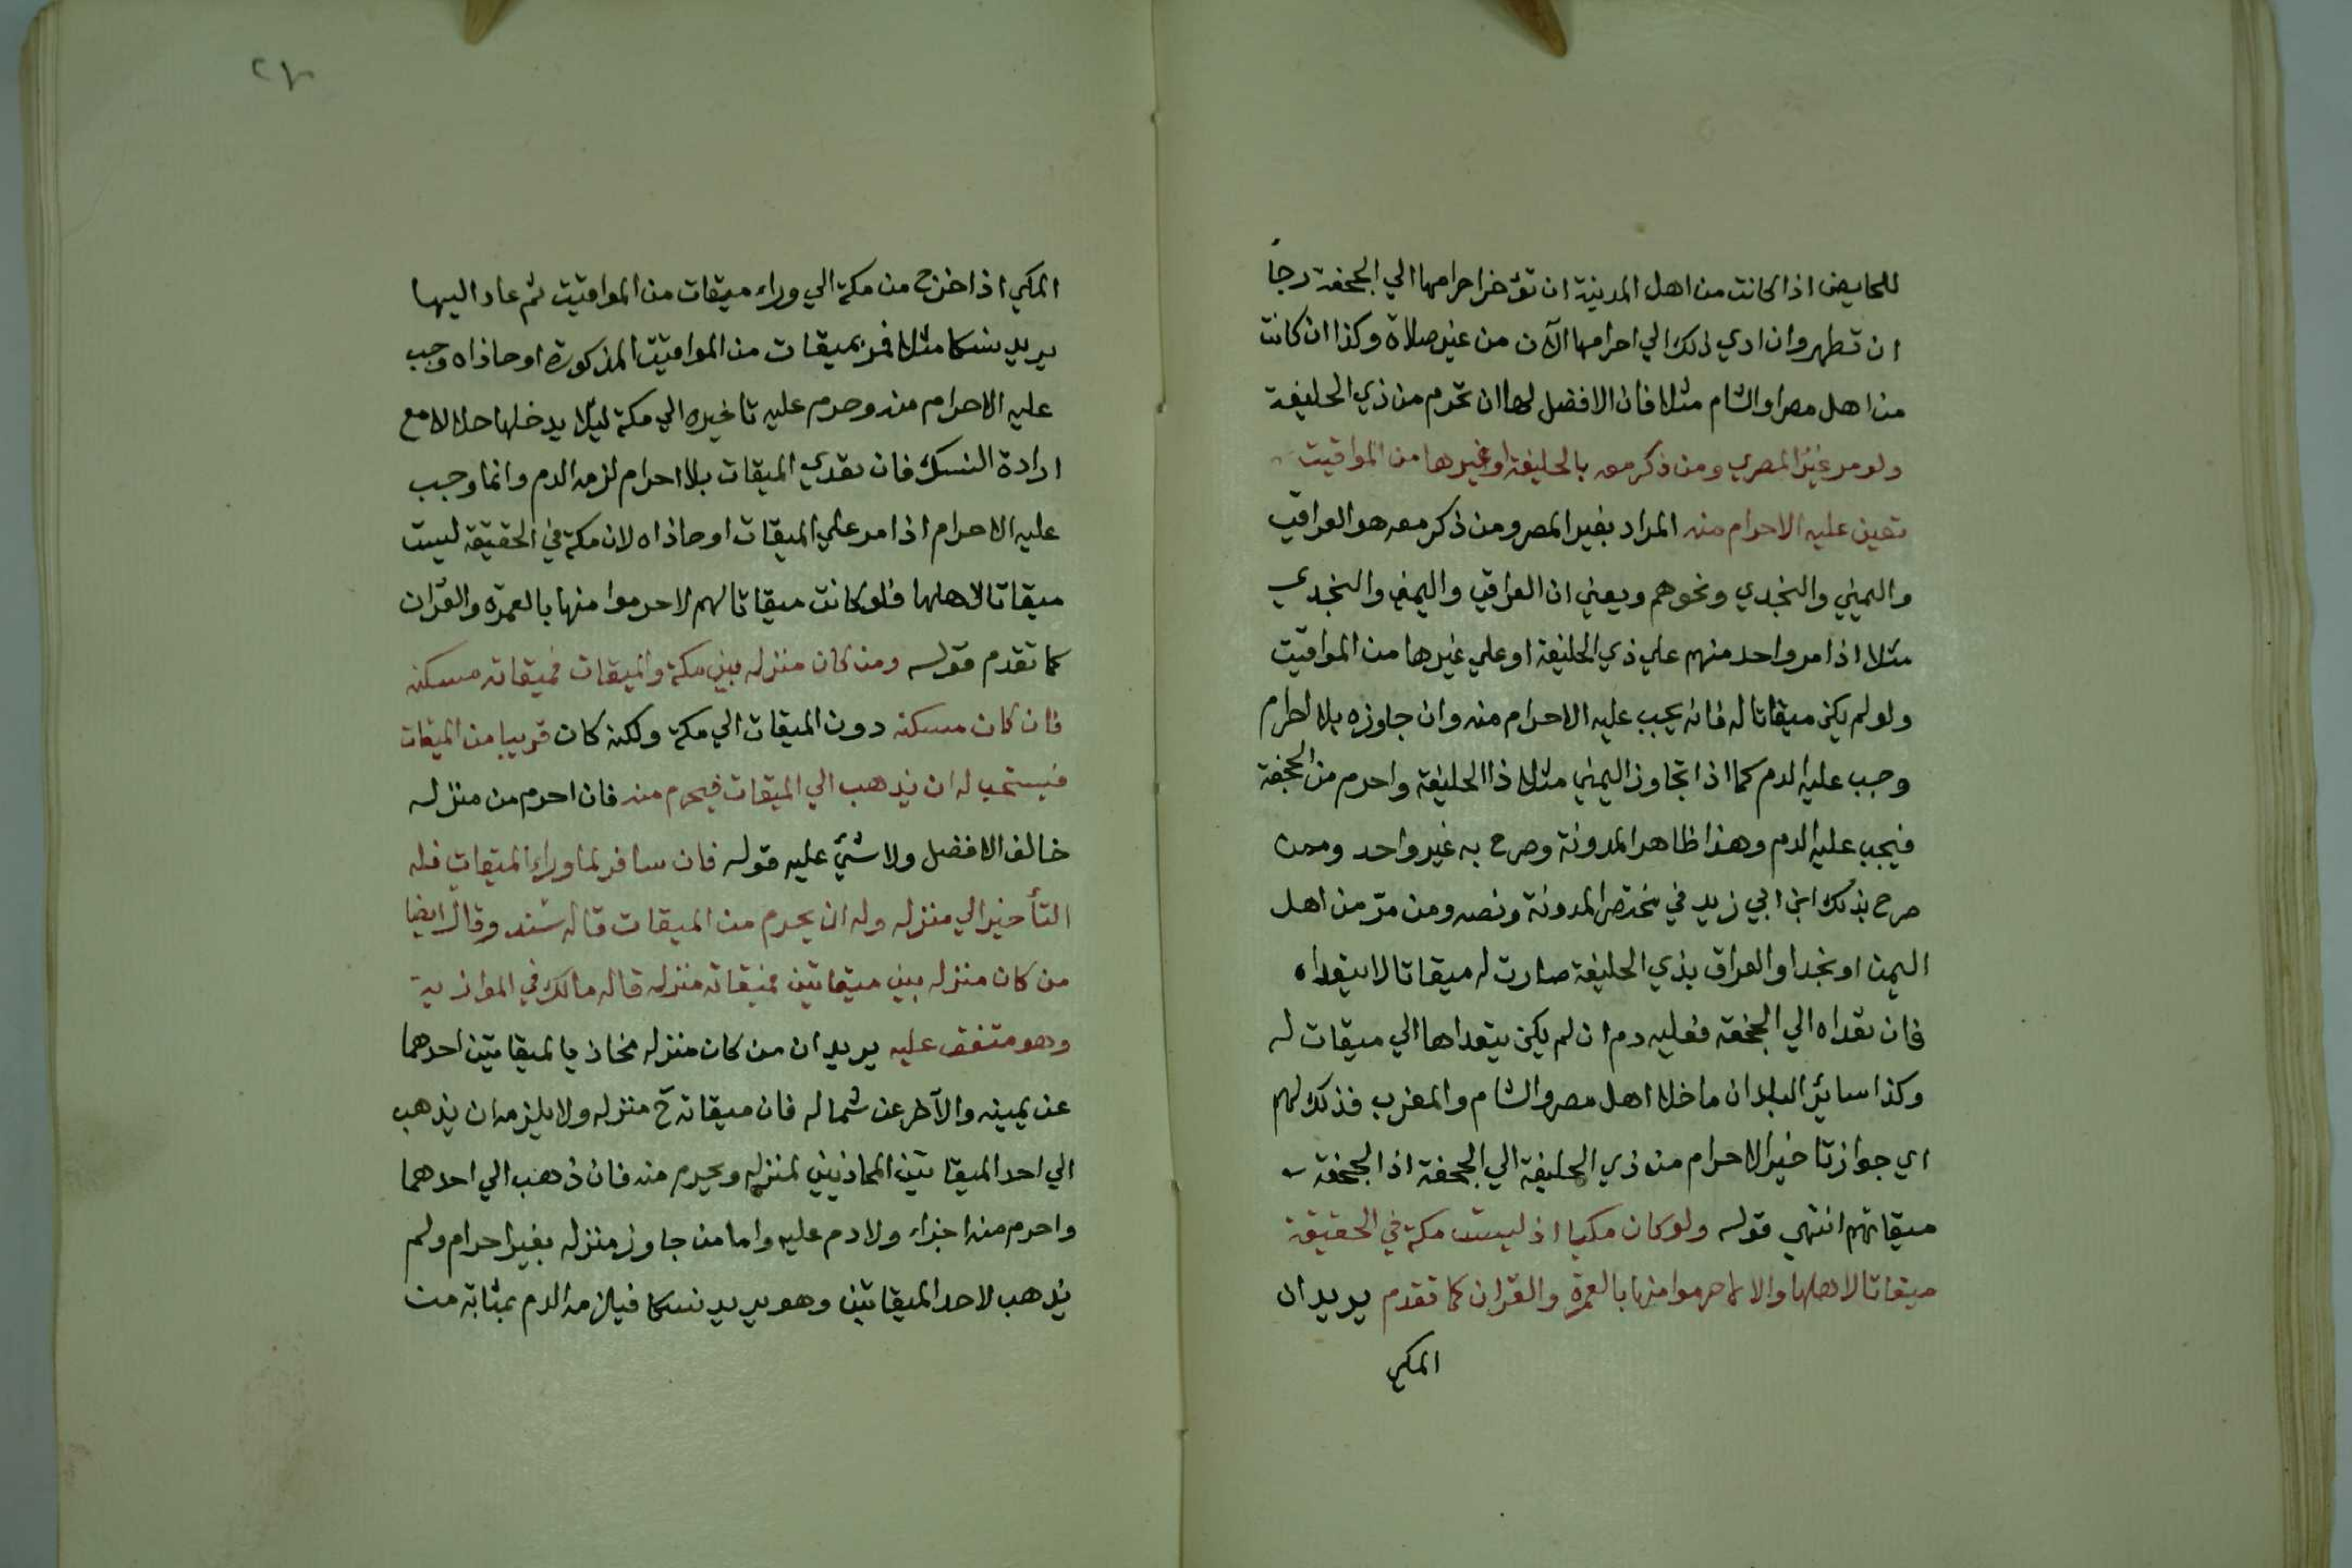 للحايض اذا كانت من اهل المدينة ان تؤخر احرامها الي الجحفة رجأ
ان تطهر وان ادي ذلك الي احرامها الآن من غير صلاة وكذا ان كانت
من اهل مصر او الشام مثلا فان الافضل لها ان تحرم من ذي الحليفة
ولو مر غير المصري ومن ذكر معه بالحليفة او غيرها من المواقيت
تعين عليه الاحرام منه المراد بغير المصر ومن ذكر معه هو العراقي
واليمني والنجدي ونحوهم ويعني ان العراقي واليمني والنجدي
مثلا اذا مر واحد منهم علي ذي الحليفة او علي غيرها من المواقيت
ولو لم يكن ميقاتا له فانه يجب عليه الاحرام منه وان جاوزه بلا احرام
وجب عليه الدم كما اذا تجاوز اليمني مثلا ذا الحليفة واحرم من الجحفة
فيجب عليه الدم وهذا ظاهر المدونة وصرح به غير واحد وممن
صرح بذلك ابن ابي زيد في مختصر المدونة ونصه ومن مرّ من اهل
اليمن او نجد او العراق بذي الحليفة صارت له ميقاتا لا يتعداه
فان تعداه الي الجحفة فعليه دم ان لم يكن يتعداها الي ميقات له
وكذا سائر البلدان ما خلا اهل مصر والشام والمغرب فذلك لهم
اي جواز تاخير الاحرام من ذي الحليفة الي الجحفة اذ الجحفة
ميقاتهم انتهي قوله ولو كان مكيا اذ ليست مكة في الحقيقة
ميقاتا لاهلها والا لما حرموا منها بالعمرة والقران كما تقدم يريد ان
المكي
٢٧
المكي اذا خرج من مكة الي وراء ميقات من المواقيت ثم عاد اليها
يريد نسكا مثلا فمر بميقات من المواقيت المذكورة او حاذاه وجب
عليه الاحرام منه وحرم عليه تاخيره الي مكة ليلا يدخلها حلالا مع
ارادة النسك فان تعدي الميقات بلا احرام لزمه الدم وانما وجب
عليه الاحرام اذا مر علي الميقات او حاذاه لان مكة في الحقيقة ليست
ميقاتا لاهلها فلو كانت ميقاتا لهم لاحرموا منها بالعمرة والقران
كما تقدم قوله ومن كان منزله بين مكة والميقات فميقاته مسكنه
فان كان مسكنه دون الميقات الي مكة ولكنه كان قريبا من الميقات
فيستحب له ان يذهب الي الميقات فيحرم منه فان احرم من منزله
خالف الافضل ولا شيئ عليه قوله فان سافر لما وراء الميقات فله
التأخير الي منزله وله ان يحرم من الميقات قاله سند وقال ايضا
من كان منزله بين ميقاتين فميقاته منزله قاله مالك في الموازية
وهو متفق عليه يريد ان من كان منزله محاذ يا لميقاتين احدهما
عن يمينه والآخر عن شماله فان ميقاته ح منزله ولا يلزمه ان يذهب
الي احد الميقاتين المحاذيين لمنزله ويحرم منه فان ذهب الي احدهما
واحرم منه اجزاء ولا دم عليه واما من جاوز منزله بغير احرام ولم
يذهب لاحد الميقاتين وهو يريد نسكا فيلزمه الدم بمثابة من